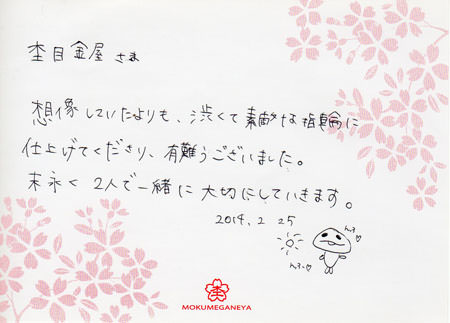 杢目金屋 さま
想像していたよりも、渋くて素敵な指輪に
仕上げてくださり、有難うございました。
末永く2人で一緒に大切にしていきます。
2014. 2 25
んふ♡
んふ♡
MOKUMEGANEYA